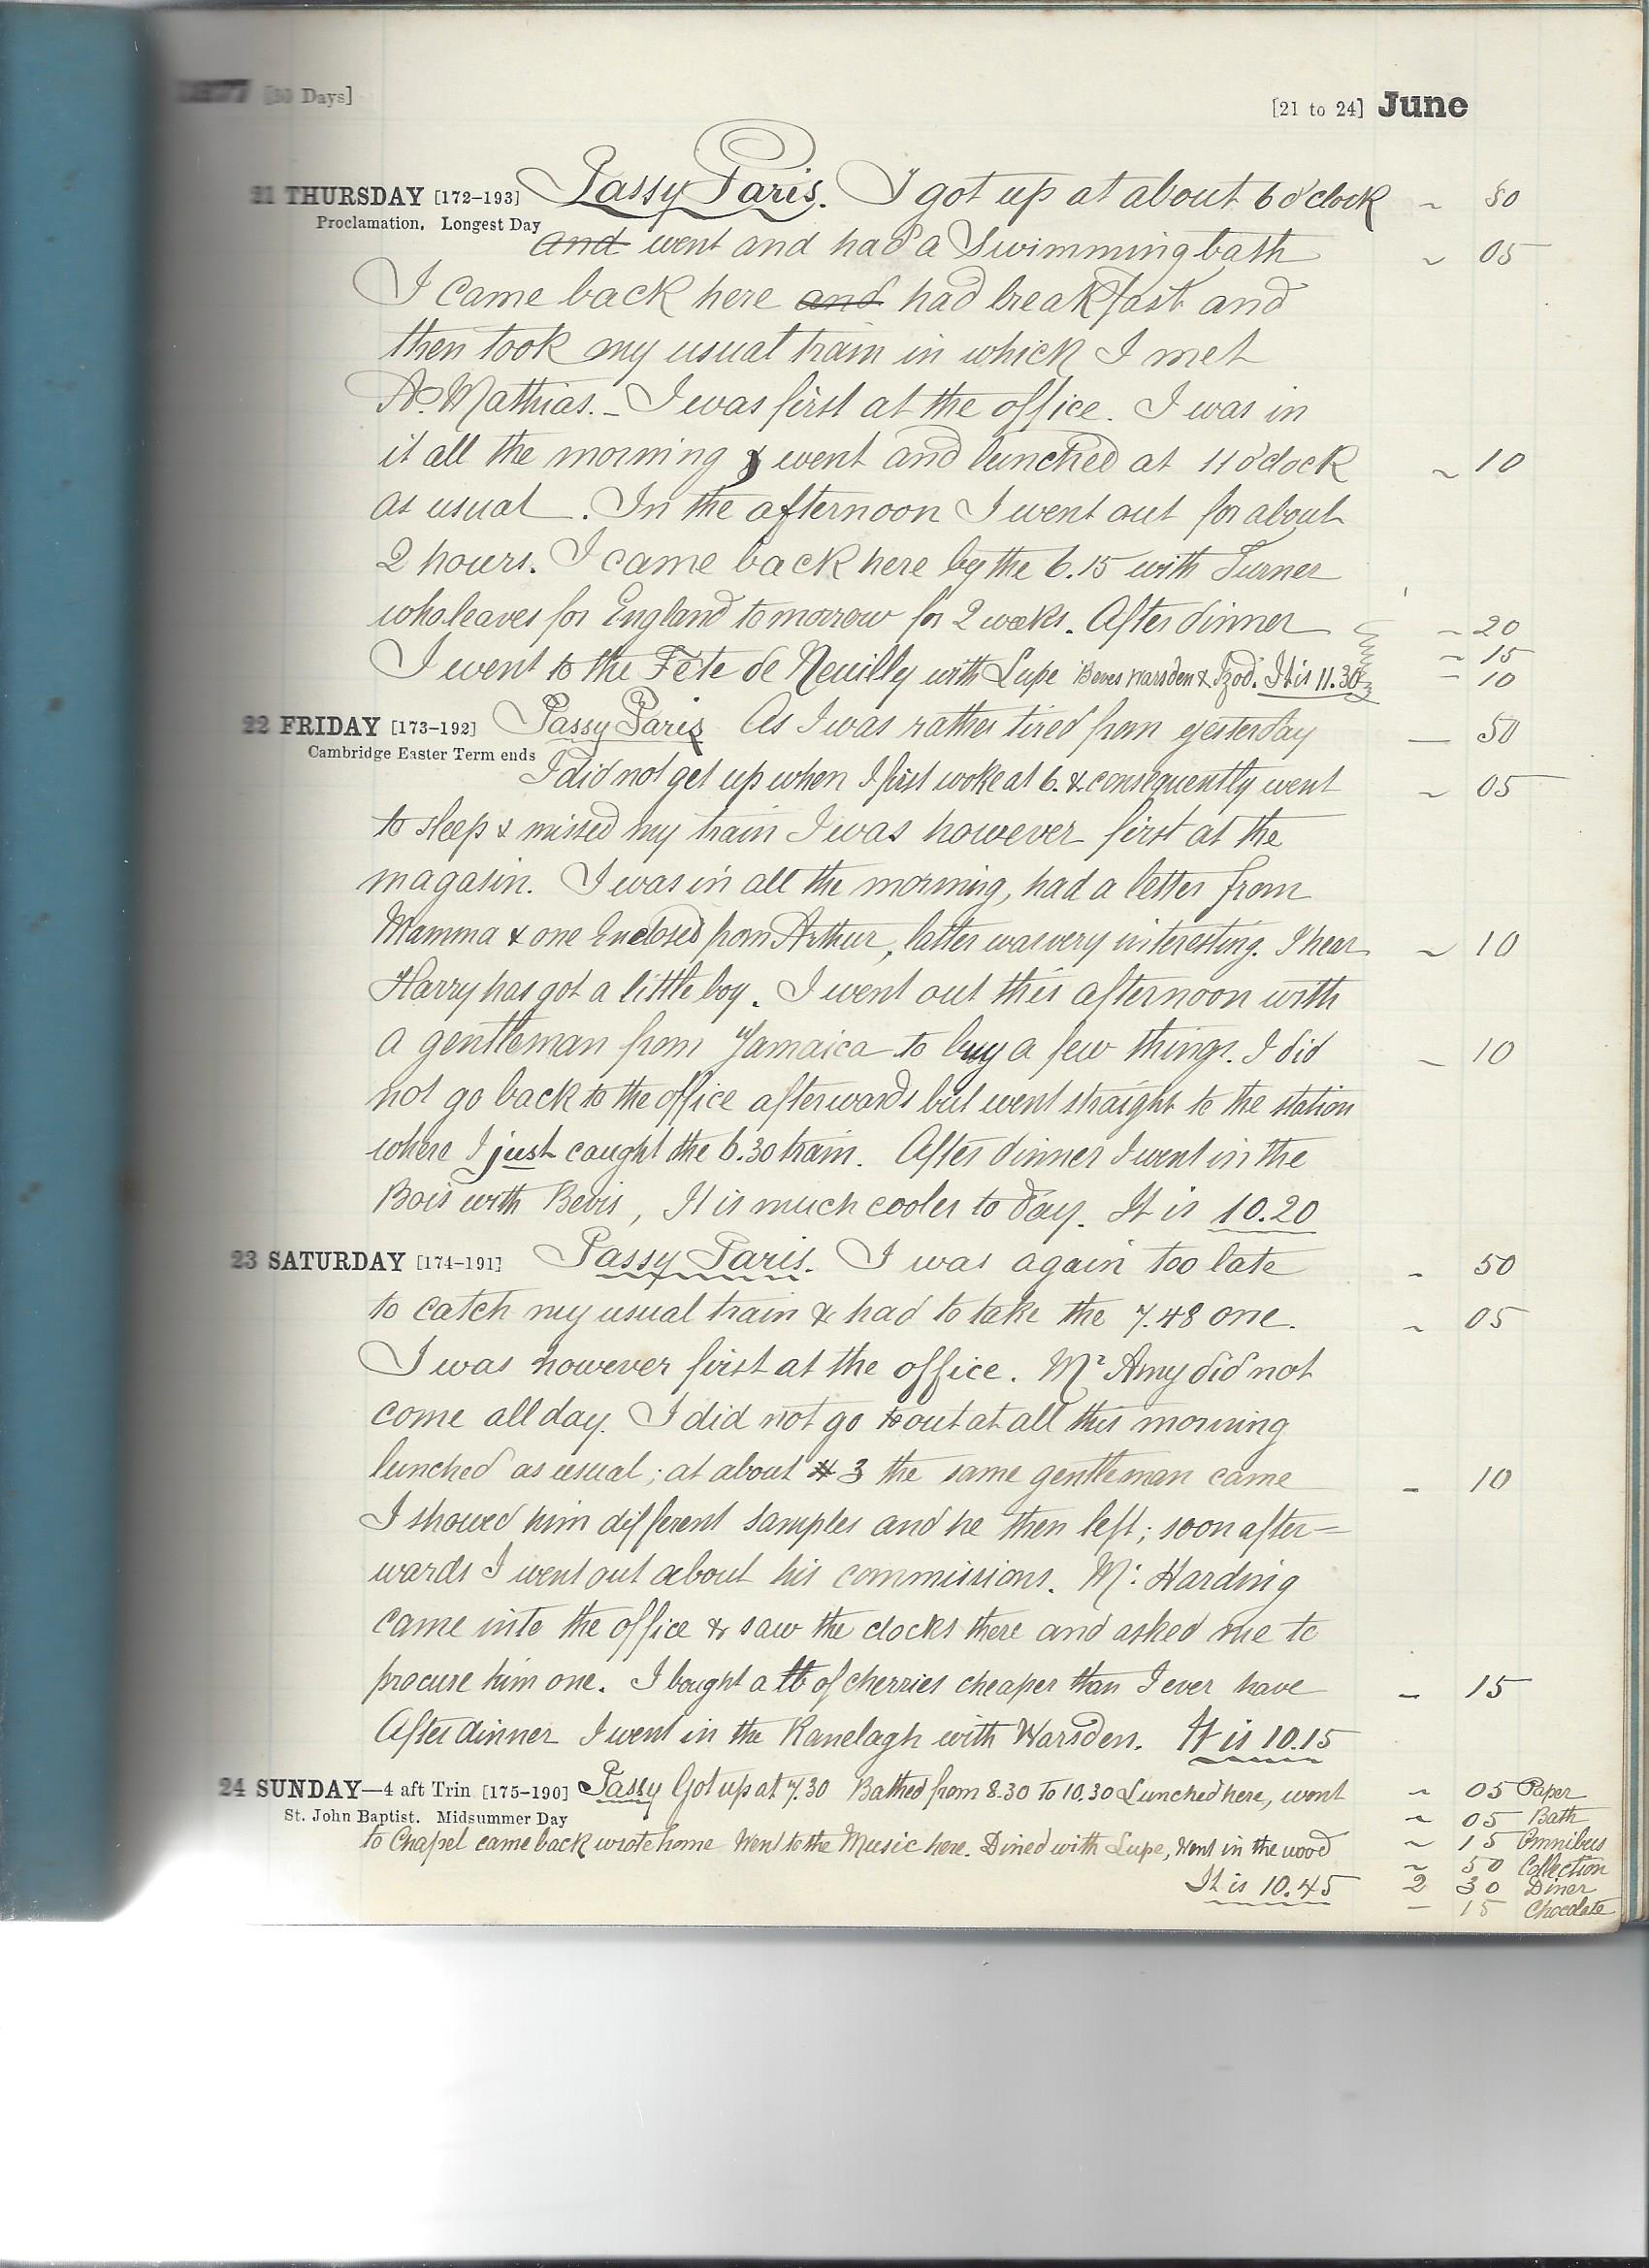 1877 [30 Days] [21 to 24] June
21 THURSDAY [172-193] Passy Paris. I got up at about 6 o'clock ~ 50
Proclamation. Longest Day
and went and had a Swimming bath ~ 05
I came back here and had breakfast and
then took my usual train in which I met
A. Mathias. – I was first at the office. I was in
it all the morning & went and lunched at 11 o'clock ~ 10
as usual. In the afternoon I went out for about
2 hours. I came back here by the 6.15 with Turner
who leaves for England tomorrow for 2 weeks. After dinner – 20
– 15
I went to the Fête de Neuilly with Lupe Beves Warsden & Izod. It is 11.30 – 10
22 FRIDAY [173-192] Passy Paris As I was rather tired from yesterday — 50
Cambridge Easter Term ends
I did not get up when I first woke at 6. & consequently went ~ 05
to sleep & missed my train I was however first at the
magasin. I was in all the morning, had a letter from
Mamma & one Enclosed from Arthur, latter was very interesting. I hear ~ 10
Harry has got a little boy. I went out this afternoon with
a gentleman from Jamaica to buy a few things. I did – 10
not go back to the office afterwards but went straight to the station
where I just caught the 6.30 train. After dinner I went in the
Bois with Bevis, It is much cooler to day. It is 10.20
23 SATURDAY [174-191] Passy Paris. I was again too late - 50
to catch my usual train & had to take the 7.48 one. ~ 05
I was however first at the office. Mr Amy did not
come all day. I did not go to out at all this morning
lunched as usual; at about 3 the same gentleman came - 10
I showed him different samples and he then left; soon after=
wards I went out about his commissions. Mr. Harding
came into the office & saw the clocks there and asked me to
procure him one. I bought a lb of cherries cheaper than I ever have – 15
After dinner I went in the Ranelagh with Warsden. It is 10.15
24 SUNDAY—4 aft Trin [175-190] Passy Got up at 7.30 Bathed from 8.30 to 10.30 Lunched here, went ~ 05 Paper
St. John Baptist. Midsummer Day ~ 05 Bath
to Chapel came back wrote home Went to the Music here. Dined with Lupe, went in the wood ~ 15 Omnibus
~ 50 Collection
It is 10.45 2 30 Diner
– 15 Chocolate